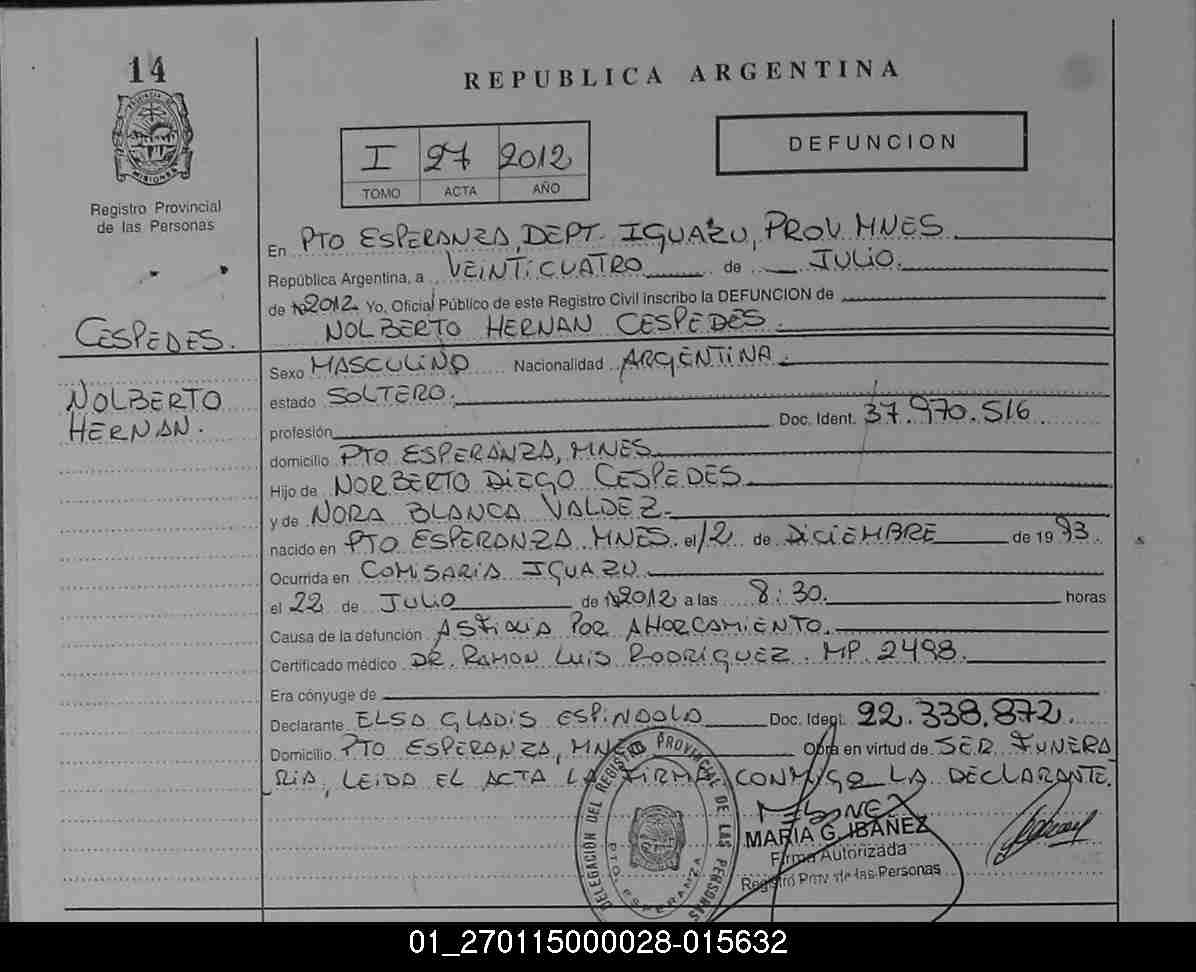 14
PROVINCIA DE
MISIONES
Registro Provincial
de las Personas
CESPEDES.
NOLBERTO
HERNAN.
REPUBLICA ARGENTINA
I 27 2012
TOMO ACTA AÑO
DEFUNCION
En PTO ESPERANZA, DEPT. IGUAZU, PROV. MNES
República Argentina, a VEINTICUATRO de JULIO.
de 2012 Yo, Oficial Público de este Registro Civil inscribo la DEFUNCION de
NOLBERTO HERNAN CESPEDES.
Sexo MASCULINO Nacionalidad ARGENTINA.
estado SOLTERO.
profesión Doc. Ident. 37.970.516
domicilio PTO ESPERANZA, MNES
Hijo de NORBERTO DIEGO CESPEDES
y de NORA BLANCA VALDEZ.
nacido en PTO ESPERANZA MNES el 12 de DICIEMBRE de 1993.
Ocurrida en COMISARIA IGUAZU
el 22 de JULIO de 2012 a las 8:30. horas
Causa de la defunción ASFIXIA POR AHORCAMIENTO.
Certificado médico DR. RAMON LUIS RODRIGUEZ. MP. 2498.
Era cónyuge de
Declarante ELSA GLADIS ESPINDOLA Doc. Ident. 22.338.872.
Domicilio PTO ESPERANZA, MNES Obra en virtud de SER. FUNERA
RIA, LEIDA EL ACTA LA FIRMA CONMIGO LA DECLARANTE.
DELEGACIÓN DEL REGISTRO PROVINCIAL DE LAS PERSONAS
PTO. ESPERANZA
MARIA G. IBAÑEZ
Firma Autorizada
Registro Prov. de las Personas
01_270115000028-015632